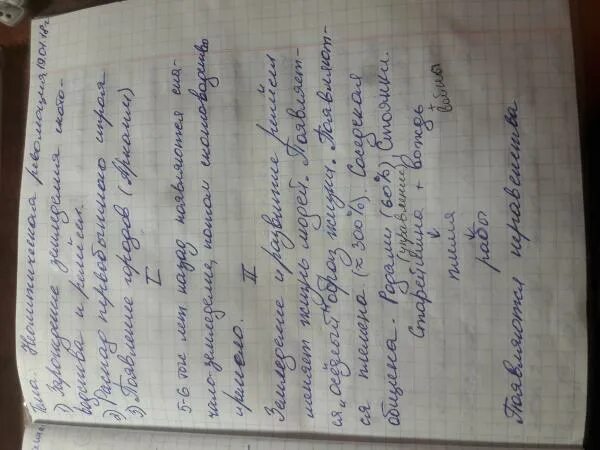 Тема: Неолитическая революция 19.01.18г
1) Зарождение земледелия ското-
водства и ремёсел.
2) Распад первобытного строя
3) Появление городов (Аркаим)
I
5-6 тыс лет назад появляются сна-
чало земледелие, потом скотоводство
и ремесло.
II
Земледелие и развитие ремёсел
меняет жизнь людей. Появляет-
ся оседлый образ жизни. Появляют-
ся племена. (≈ 300%). Соседская
община. Родами (60%) Стоянки.
(управление)
Старейшина + вождь
+ войны
племя
рабы
Появляются неравенства